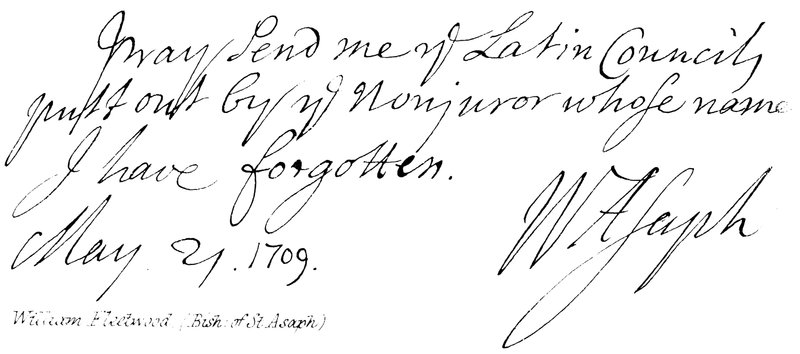 I pray Send me yͤ Latin Councils
putt out by yͤ Nonjuror whose name
I have forgotten.
W Asaph
May 21. 1709.
William Fleetwood (Bish: of St. Asaph)